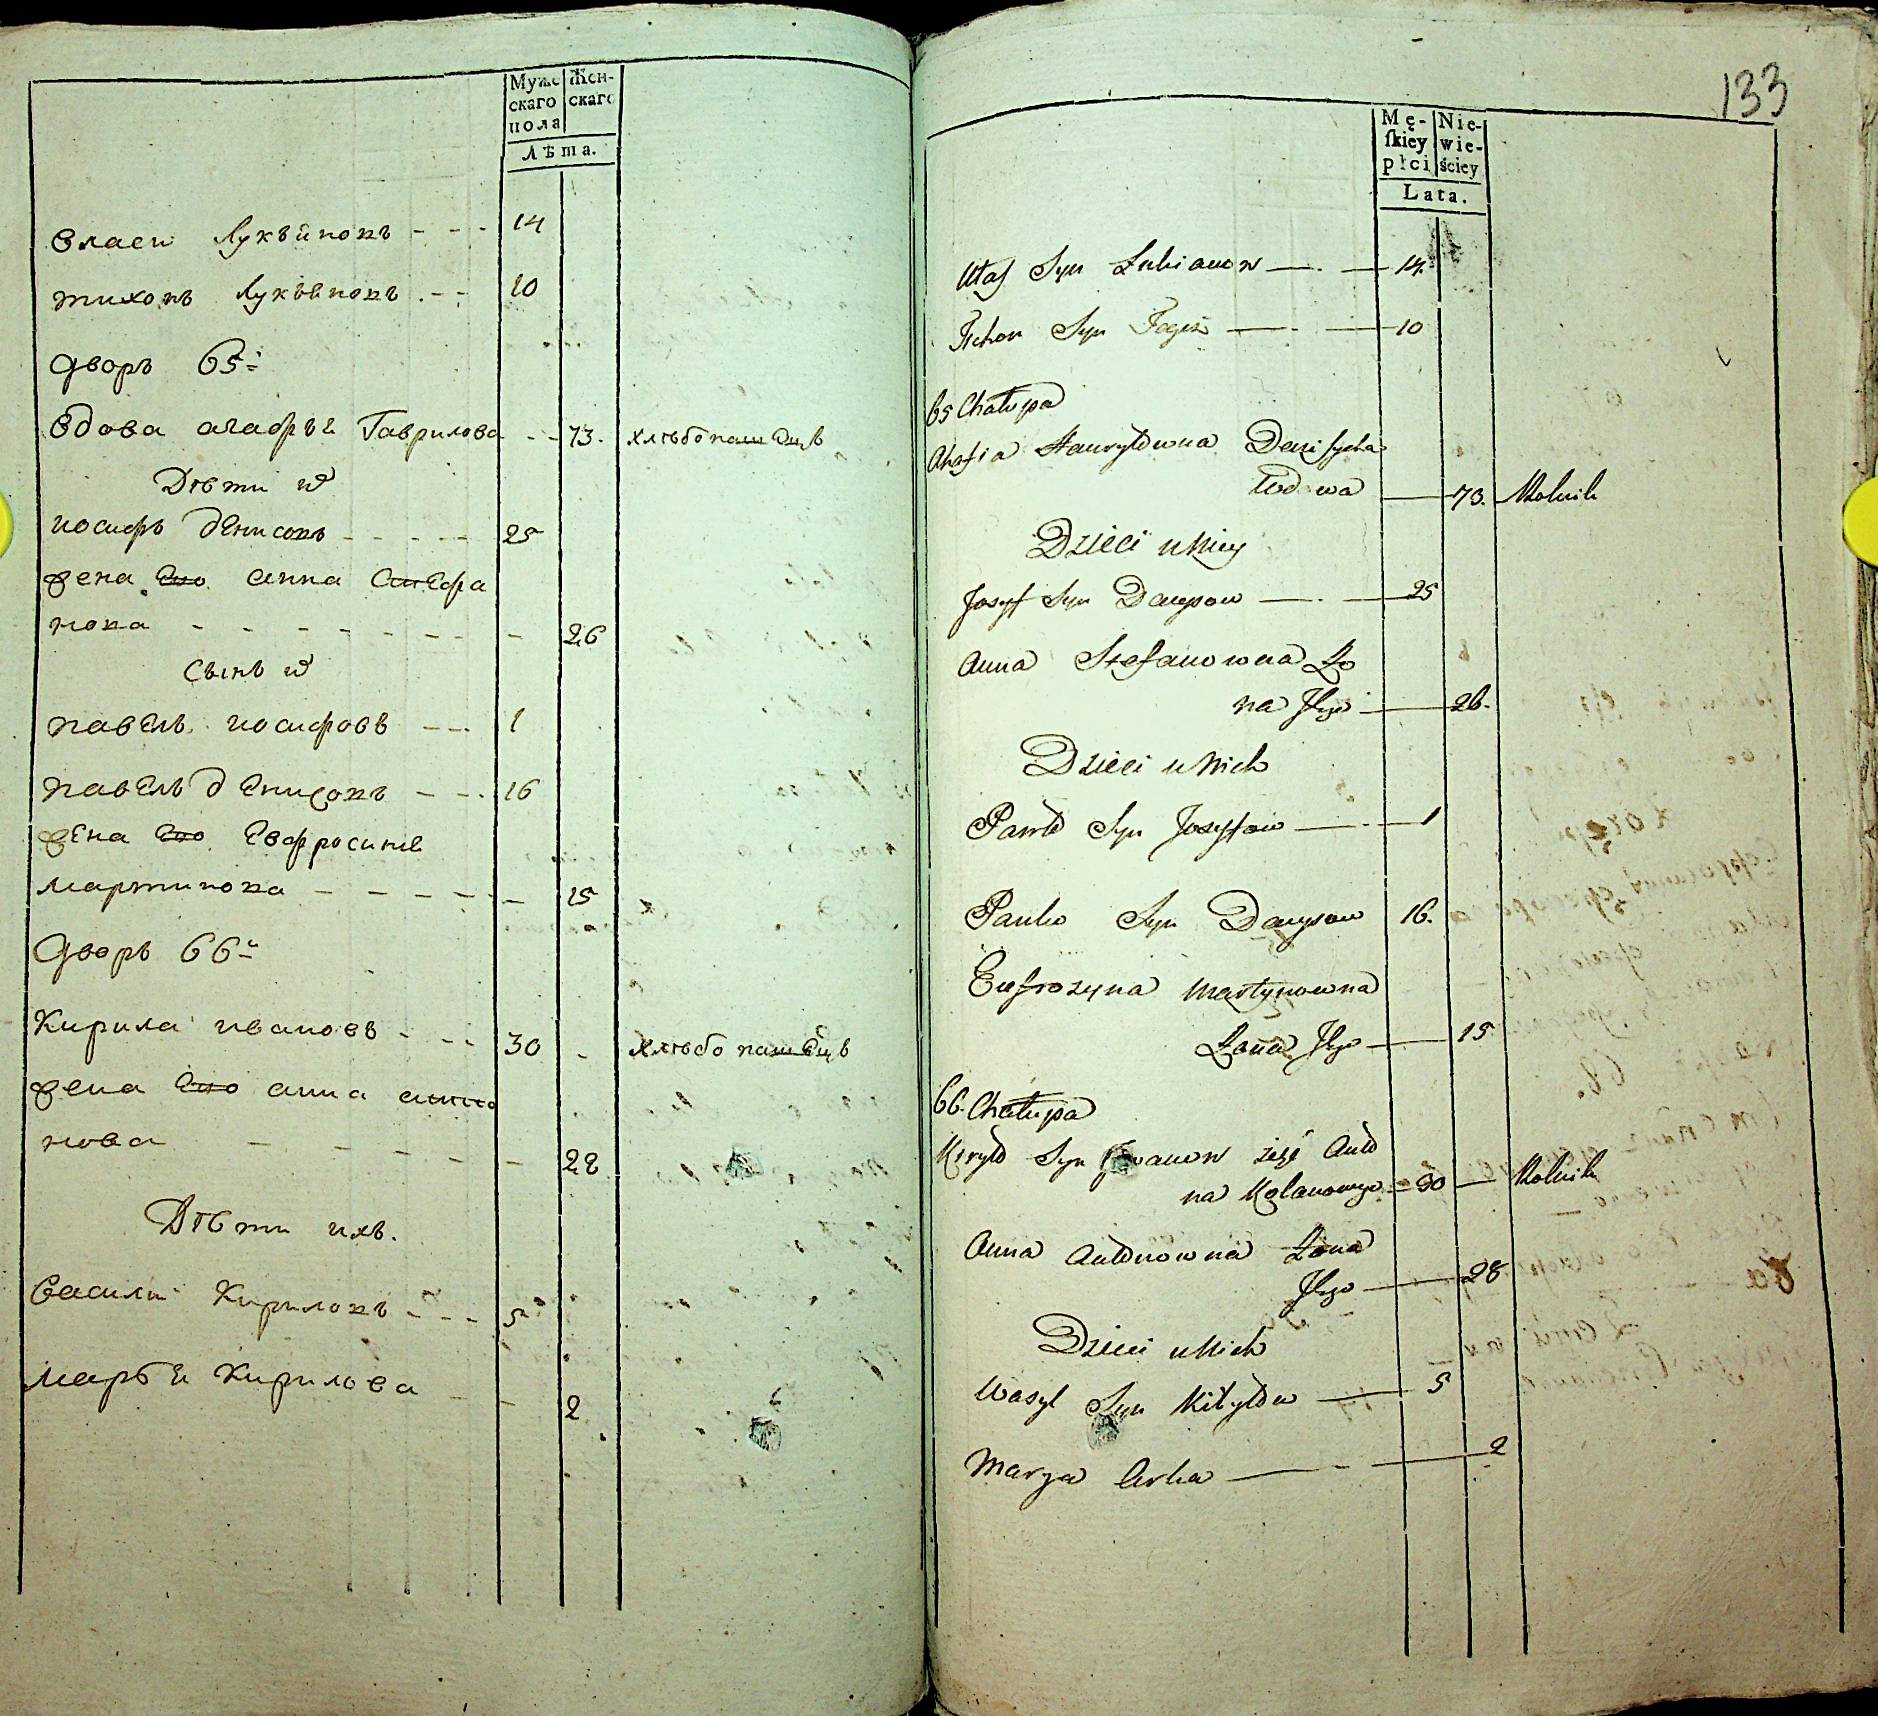 Муже
скаго
пола
Жен-
скаго
Лѣта.
Власи Лукьяновъ - - - 14
Тихонъ Лукьяновъ - - 10
Дворъ 65й
Вдова агафья Гаврилова - - 73. хлѣбопашецъ
Дѣти
иосифъ денисовъ - - - - - 25
жена Его анна Стефа
нова - - - - - - - - 26
Сынъ
павелъ иосифовъ - - - 1
павелъ денисовъ - - - 16
жена Его Евфросиния
мартинова - - - - - - 15
Дворъ 66й
Кирила ивановъ - - - 30 - хлѣбопашецъ
жена Его анна анто
нова - - - - - 28
Дѣти ихъ.
Василий Кириловъ - - - 5
марья Кирилова - - 2
133
Mę-
ſkiey
płci
Nie-
wie-
ściey
Lata.
Własy Syn Łukianow — 14.
Tichon Syn Tegoż — 10
65 Chałupa
Ahafia Hauryłowna Denisycha
Wdowa — 73. Rolnik
Dzieci u Niey
Josyf Syn Danysow — 25
Anna Stefanowna Żo
na Jego — 26.
Dzieci u Nich
Paweł Syn Josyfow — 1
Pawło Syn Danysow 16.
Eufrozyna Martynowna
Żona Jego — 15
66. Chałupa
Kiryło Syn Jwanow zięć Anto
na — 30 — Rolnik
Anna Antonowna Żona
Jego — 28
Dzieci u Nich
Wasyl Syn Kiryłow — 5
Marya Curka — 2